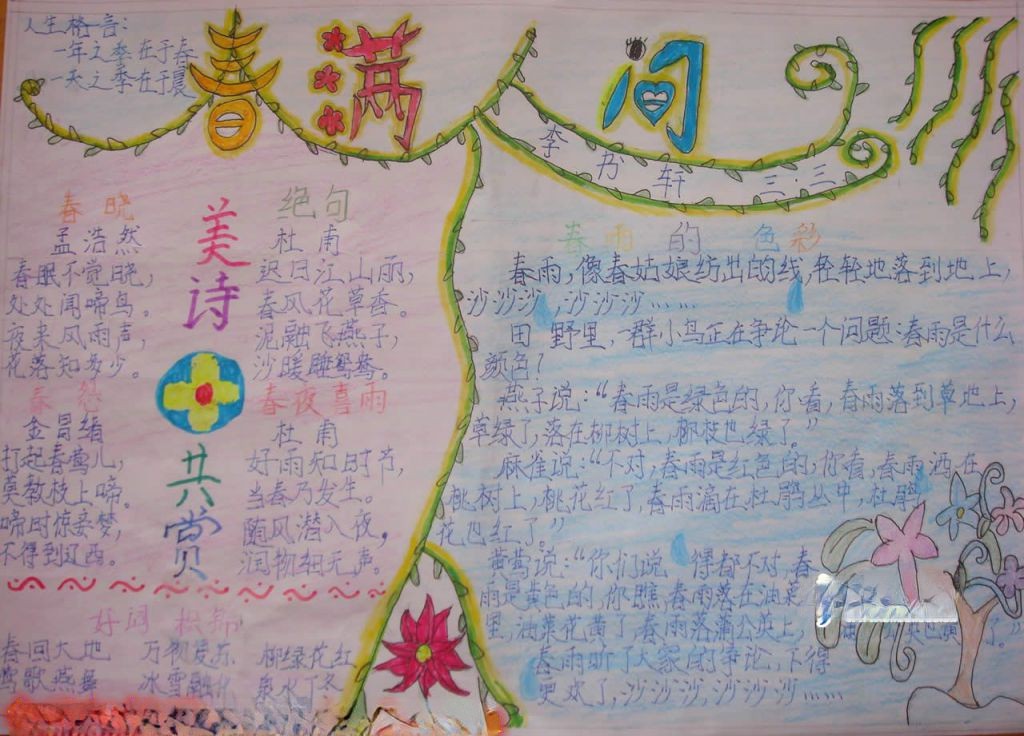 人生格言:
一年之季在于春
一天之季在于晨
春满
间
李书轩 三.三
美诗共赏
春晓
孟浩然
春眠不觉晓,
处处闻啼鸟。
夜来风雨声,
花落知多少。
春
金昌绪
打起春莺儿,
莫教枝上啼。
啼时惊妾梦,
不得到辽西。
绝句
杜甫
迟日江山丽,
春风花草香。
泥融飞燕子,
沙暖睡鸳鸯。
春夜喜雨
杜甫
好雨知时节,
当春乃发生。
随风潜入夜,
润物细无声。
好词
春回大地 万物复苏 柳绿花红
莺歌燕舞 冰雪融化 泉水丁冬
春雨的色彩
春雨,像春姑娘纺出的线,轻轻地落到地上,
沙沙沙,沙沙沙……
田野里,一群小鸟正在争论一个问题:春雨是什么
颜色?
燕子说:“春雨是绿色的,你看,春雨落到草地上,
草绿了,落在柳树上,柳枝也绿了。”
麻雀说:“不对,春雨是红色的,你看,春雨洒在
桃树上,桃花红了,春雨滴在杜鹃丛中,杜鹃
花也红了。”
黄莺说:“你们说得都不对,春
雨是黄色的,你瞧,春雨落在油菜
里,油菜花黄了,春雨落蒲公英上,
了。”
春雨听了大家的争论,下得
更欢了,沙沙沙,沙沙沙……